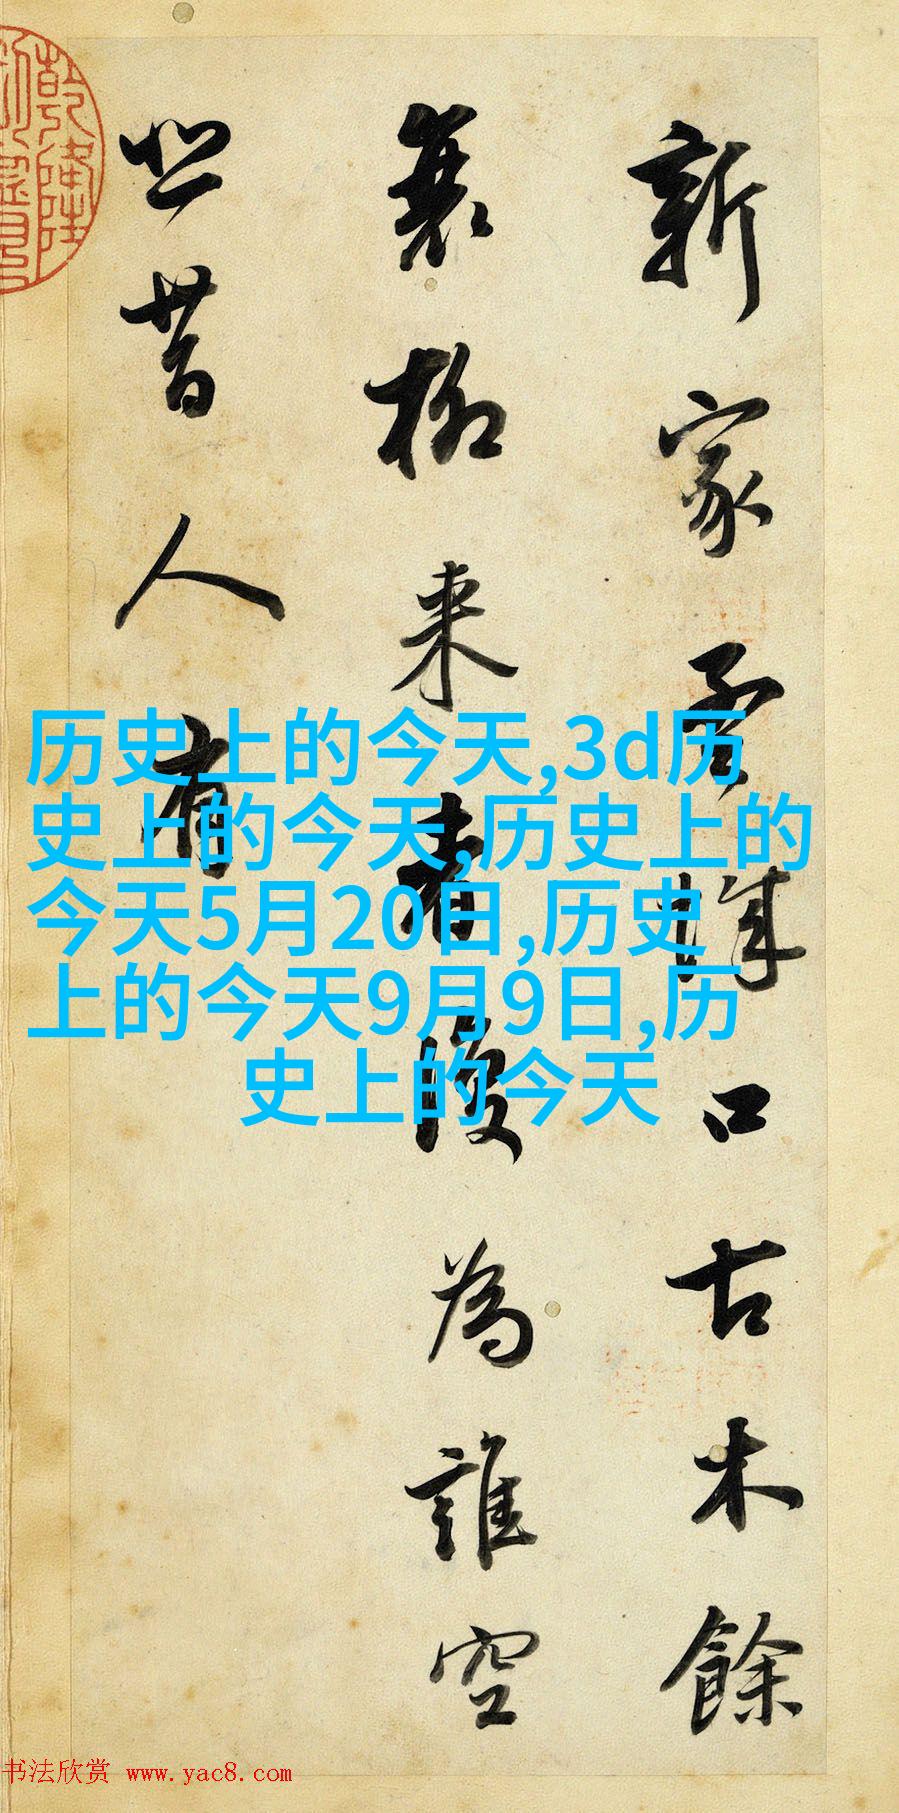 新家孟城口古木餘
衰柳来者復為誰空
悲昔人有
历史上的今天,3d历
史上的今天,历史上的
今天5月20日,历史
上的今天9月9日,历
史上的今天
书法欣赏 www.yac8.com